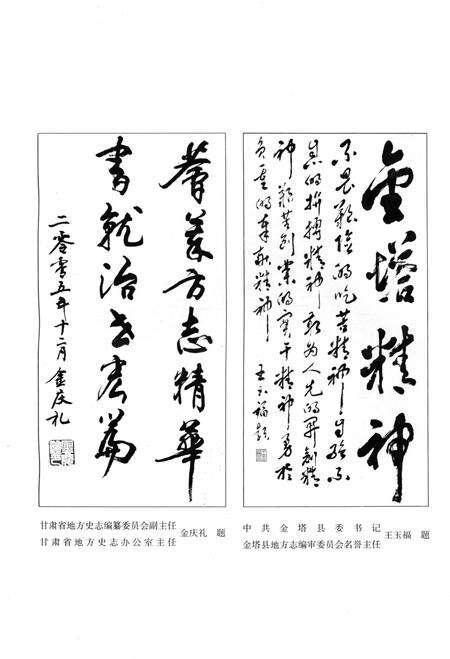 荟萃方志精华
书就治世宏篇
二零零五年十二月 金庆礼
甘肃省地方史志编纂委员会副主任
甘肃省地方史志办公室主任
金庆礼 题
金塔精神
不畏艰险的吃苦精神，自强不
息的拼搏精神，敢为人先的开创精
神，艰苦创业的实干精神，勇于
负重的奉献精神。
王玉福题
中共金塔县委书记
金塔县地方志编审委员会名誉主任
王玉福 题